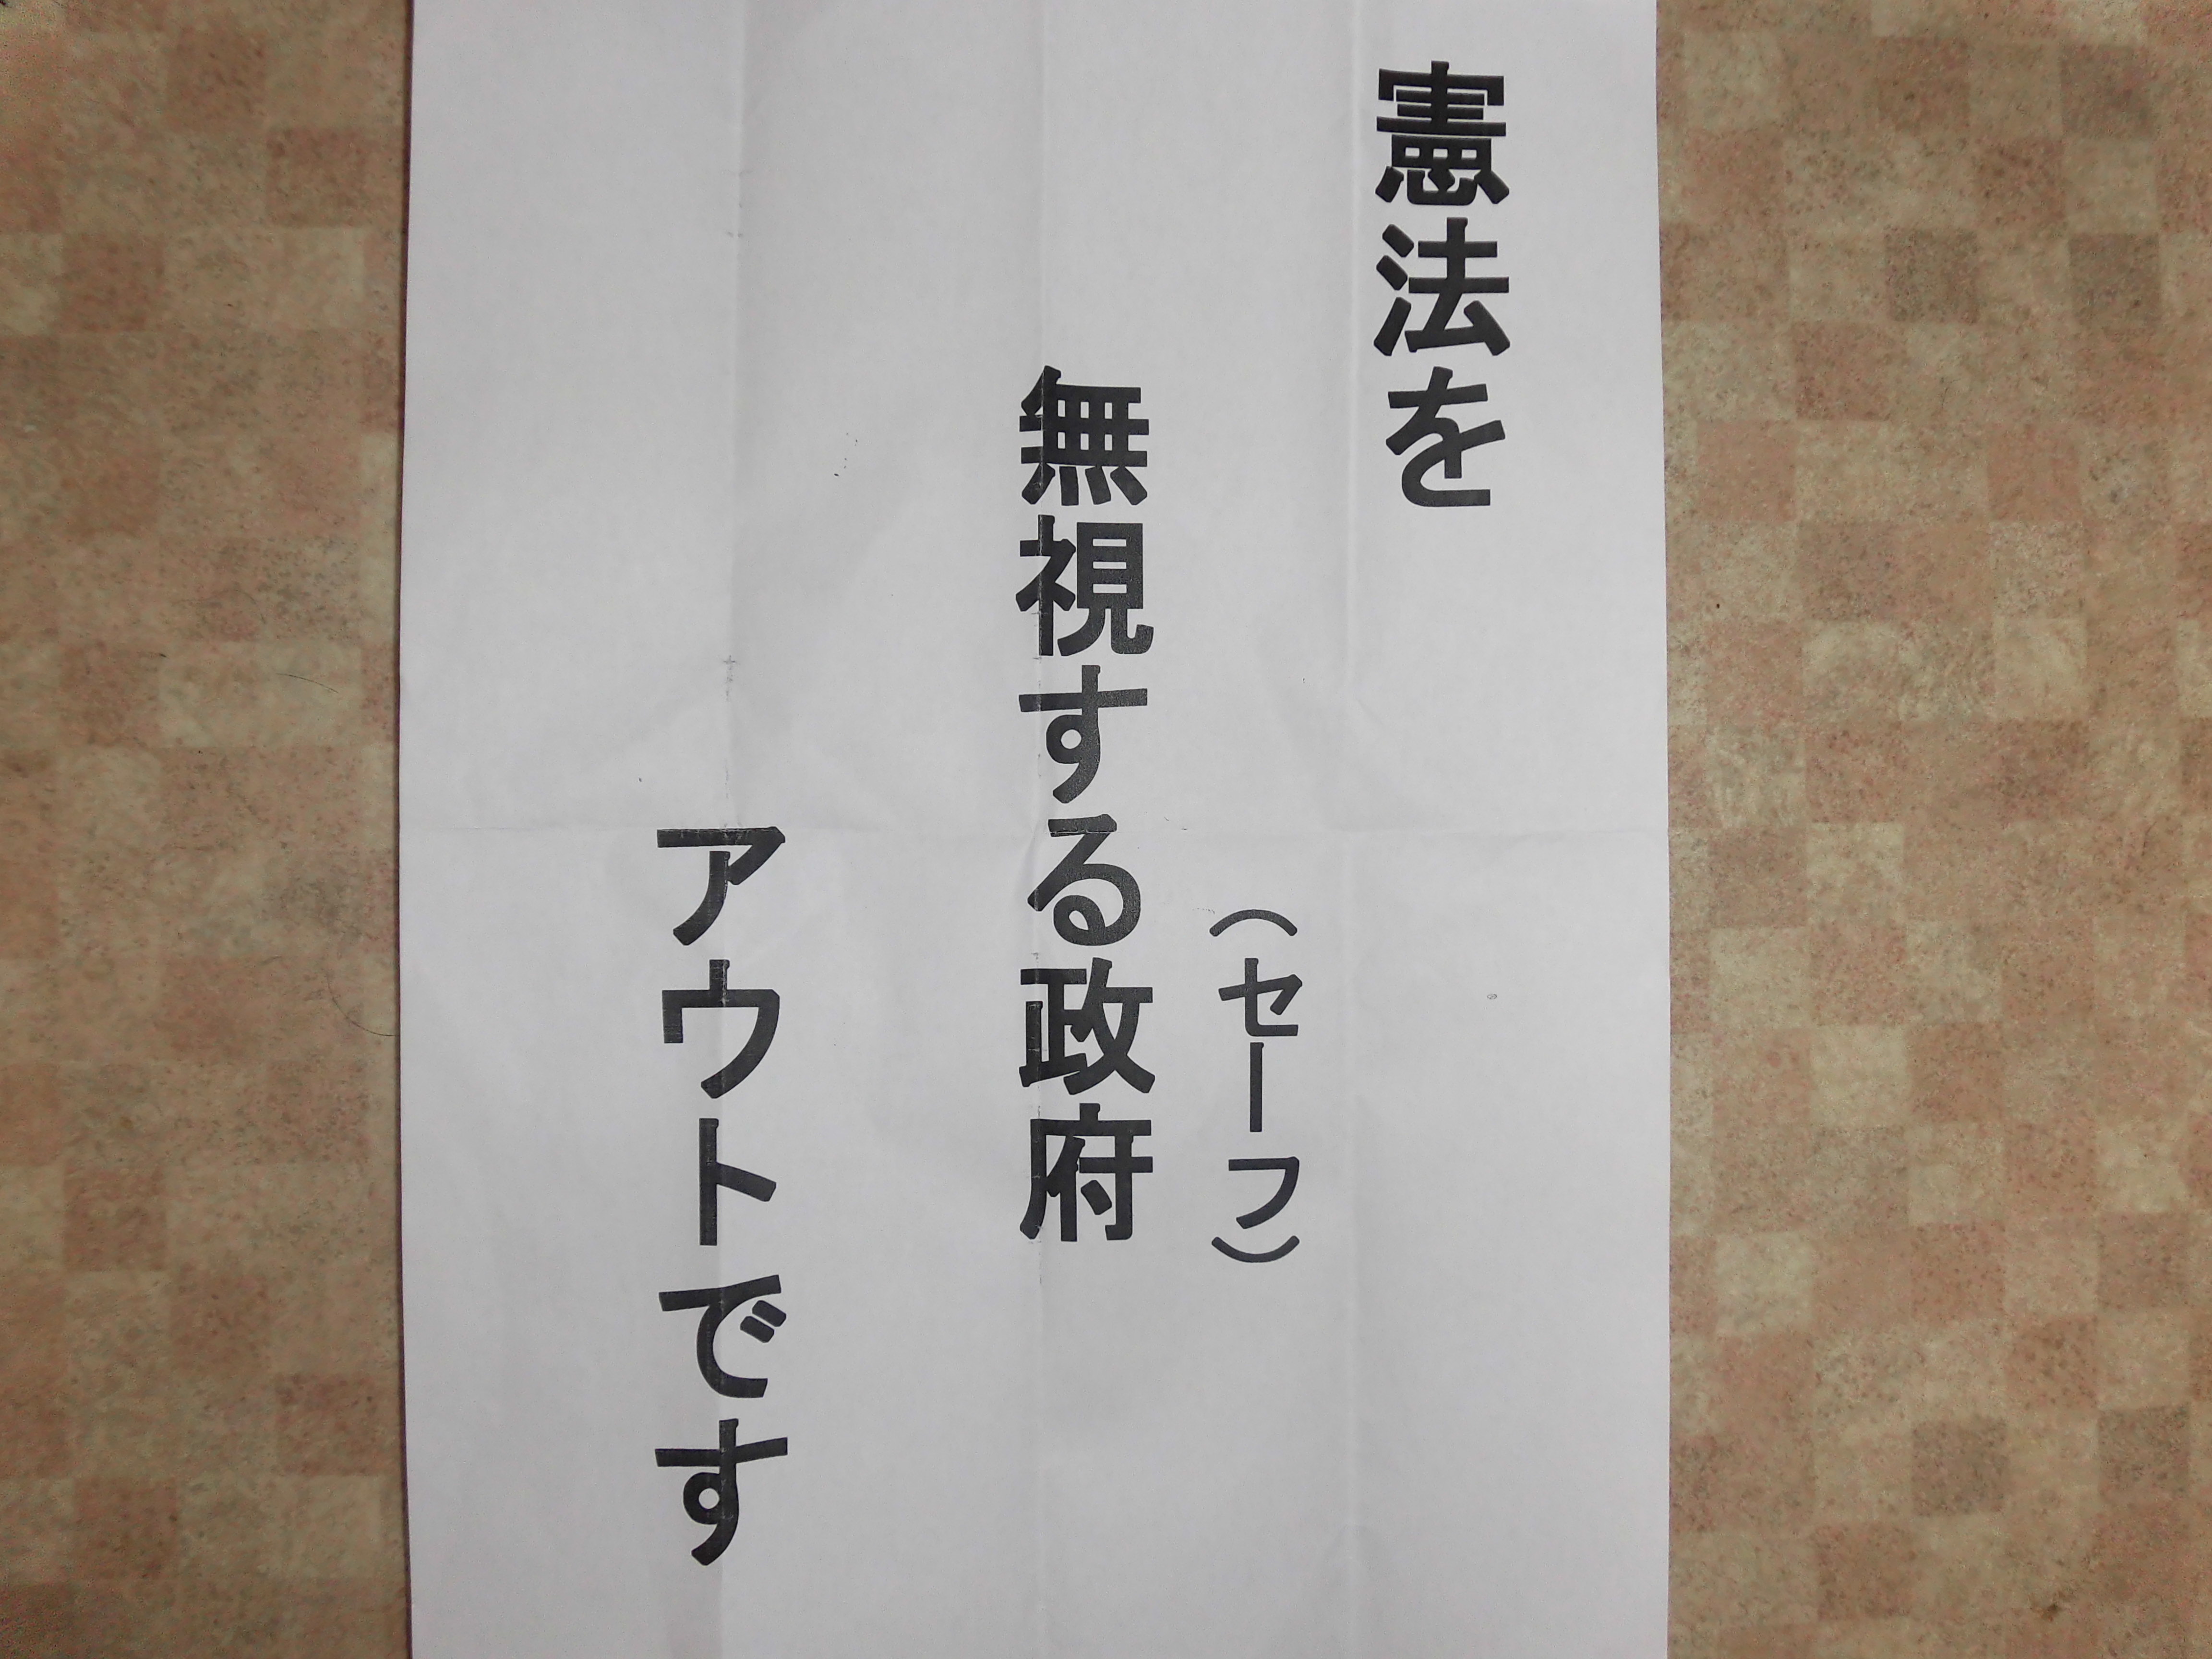 憲法を
(セーフ)
無視する政府
アウトです